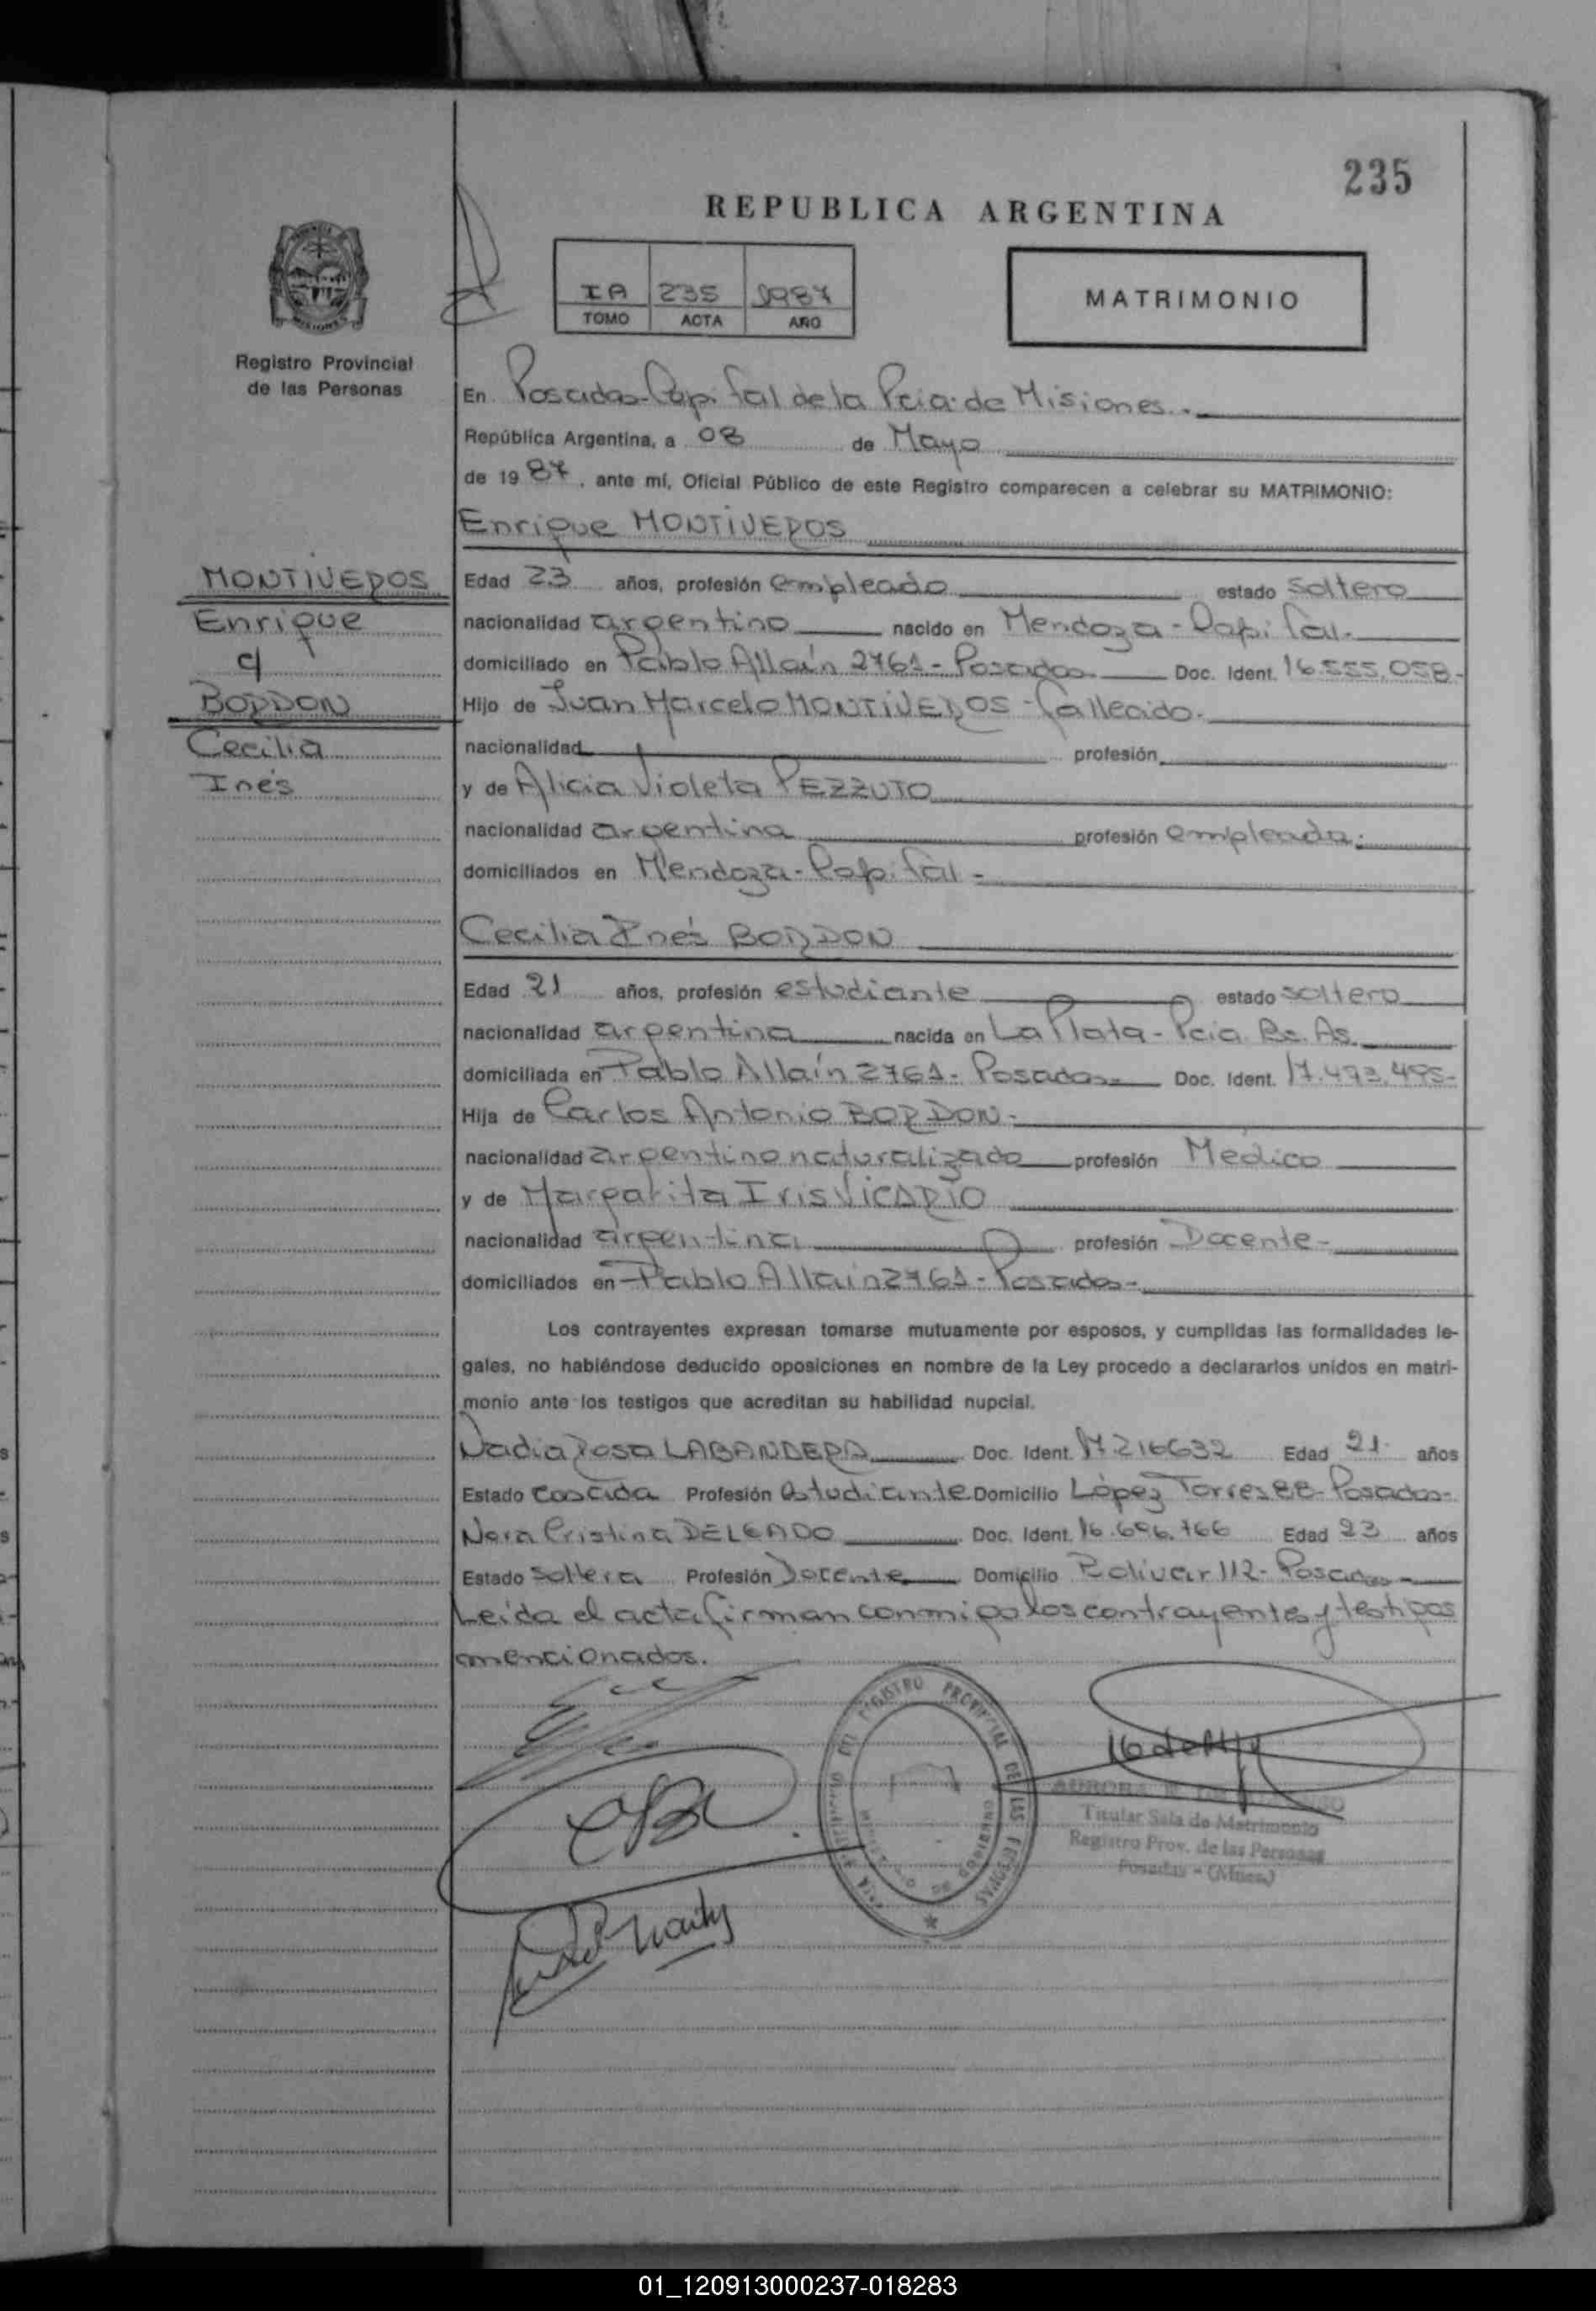 235
REPUBLICA ARGENTINA
IA 235 1987
TOMO ACTA AÑO
MATRIMONIO
Registro Provincial
de las Personas
En Posadas-Capital de la Pcia. de Misiones.
República Argentina, a 08 de Mayo
de 1987, ante mí, Oficial Público de este Registro comparecen a celebrar su MATRIMONIO:
Enrique MONTIVEROS
MONTIVEROS
Enrique
c/
BORDON
Cecilia
Inés
Edad 23 años, profesión empleado estado soltero
nacionalidad argentino nacido en Mendoza-Capital.
domiciliado en Pablo Allaín 2761-Posadas Doc. Ident. 16.555.058.-
Hijo de Juan Marcelo MONTIVEROS-fallecido.
nacionalidad profesión
y de Alicia Violeta PEZZUTO
nacionalidad argentina profesión empleada.
domiciliados en Mendoza-Capital-
Cecilia Inés BORDON
Edad 21 años, profesión estudiante estado soltera
nacionalidad argentina nacida en La Plata-Pcia. Bs. As.
domiciliada en Pablo Allaín 2761-Posadas Doc. Ident. 17.493.495-
Hija de Carlos Antonio BORDON-
nacionalidad argentino naturalizado profesión Médico
y de Margarita Iris VICARIO
nacionalidad argentina profesión Docente-
domiciliados en Pablo Allaín 2761-Posadas-
Los contrayentes expresan tomarse mutuamente por esposos, y cumplidas las formalidades le-
gales, no habiéndose deducido oposiciones en nombre de la Ley procedo a declararlos unidos en matri-
monio ante los testigos que acreditan su habilidad nupcial.
Nadia Rosa LABANDERA Doc. Ident. 17.216632 Edad 21 años
Estado casada Profesión estudiante Domicilio López Torres 88-Posadas-
Nora Cristina DELGADO Doc. Ident. 16.696.766 Edad 23 años
Estado soltera Profesión Docente Domicilio Bolívar 112-Posadas-
Leída el acta firman conmigo los contrayentes y testigos
mencionados.
REGISTRO PROVINCIAL DE LAS PERSONAS
AURORA
Titular Sala de Matrimonio
Registro Prov. de las Personas
Posadas - (Mnes.)
01_120913000237-018283